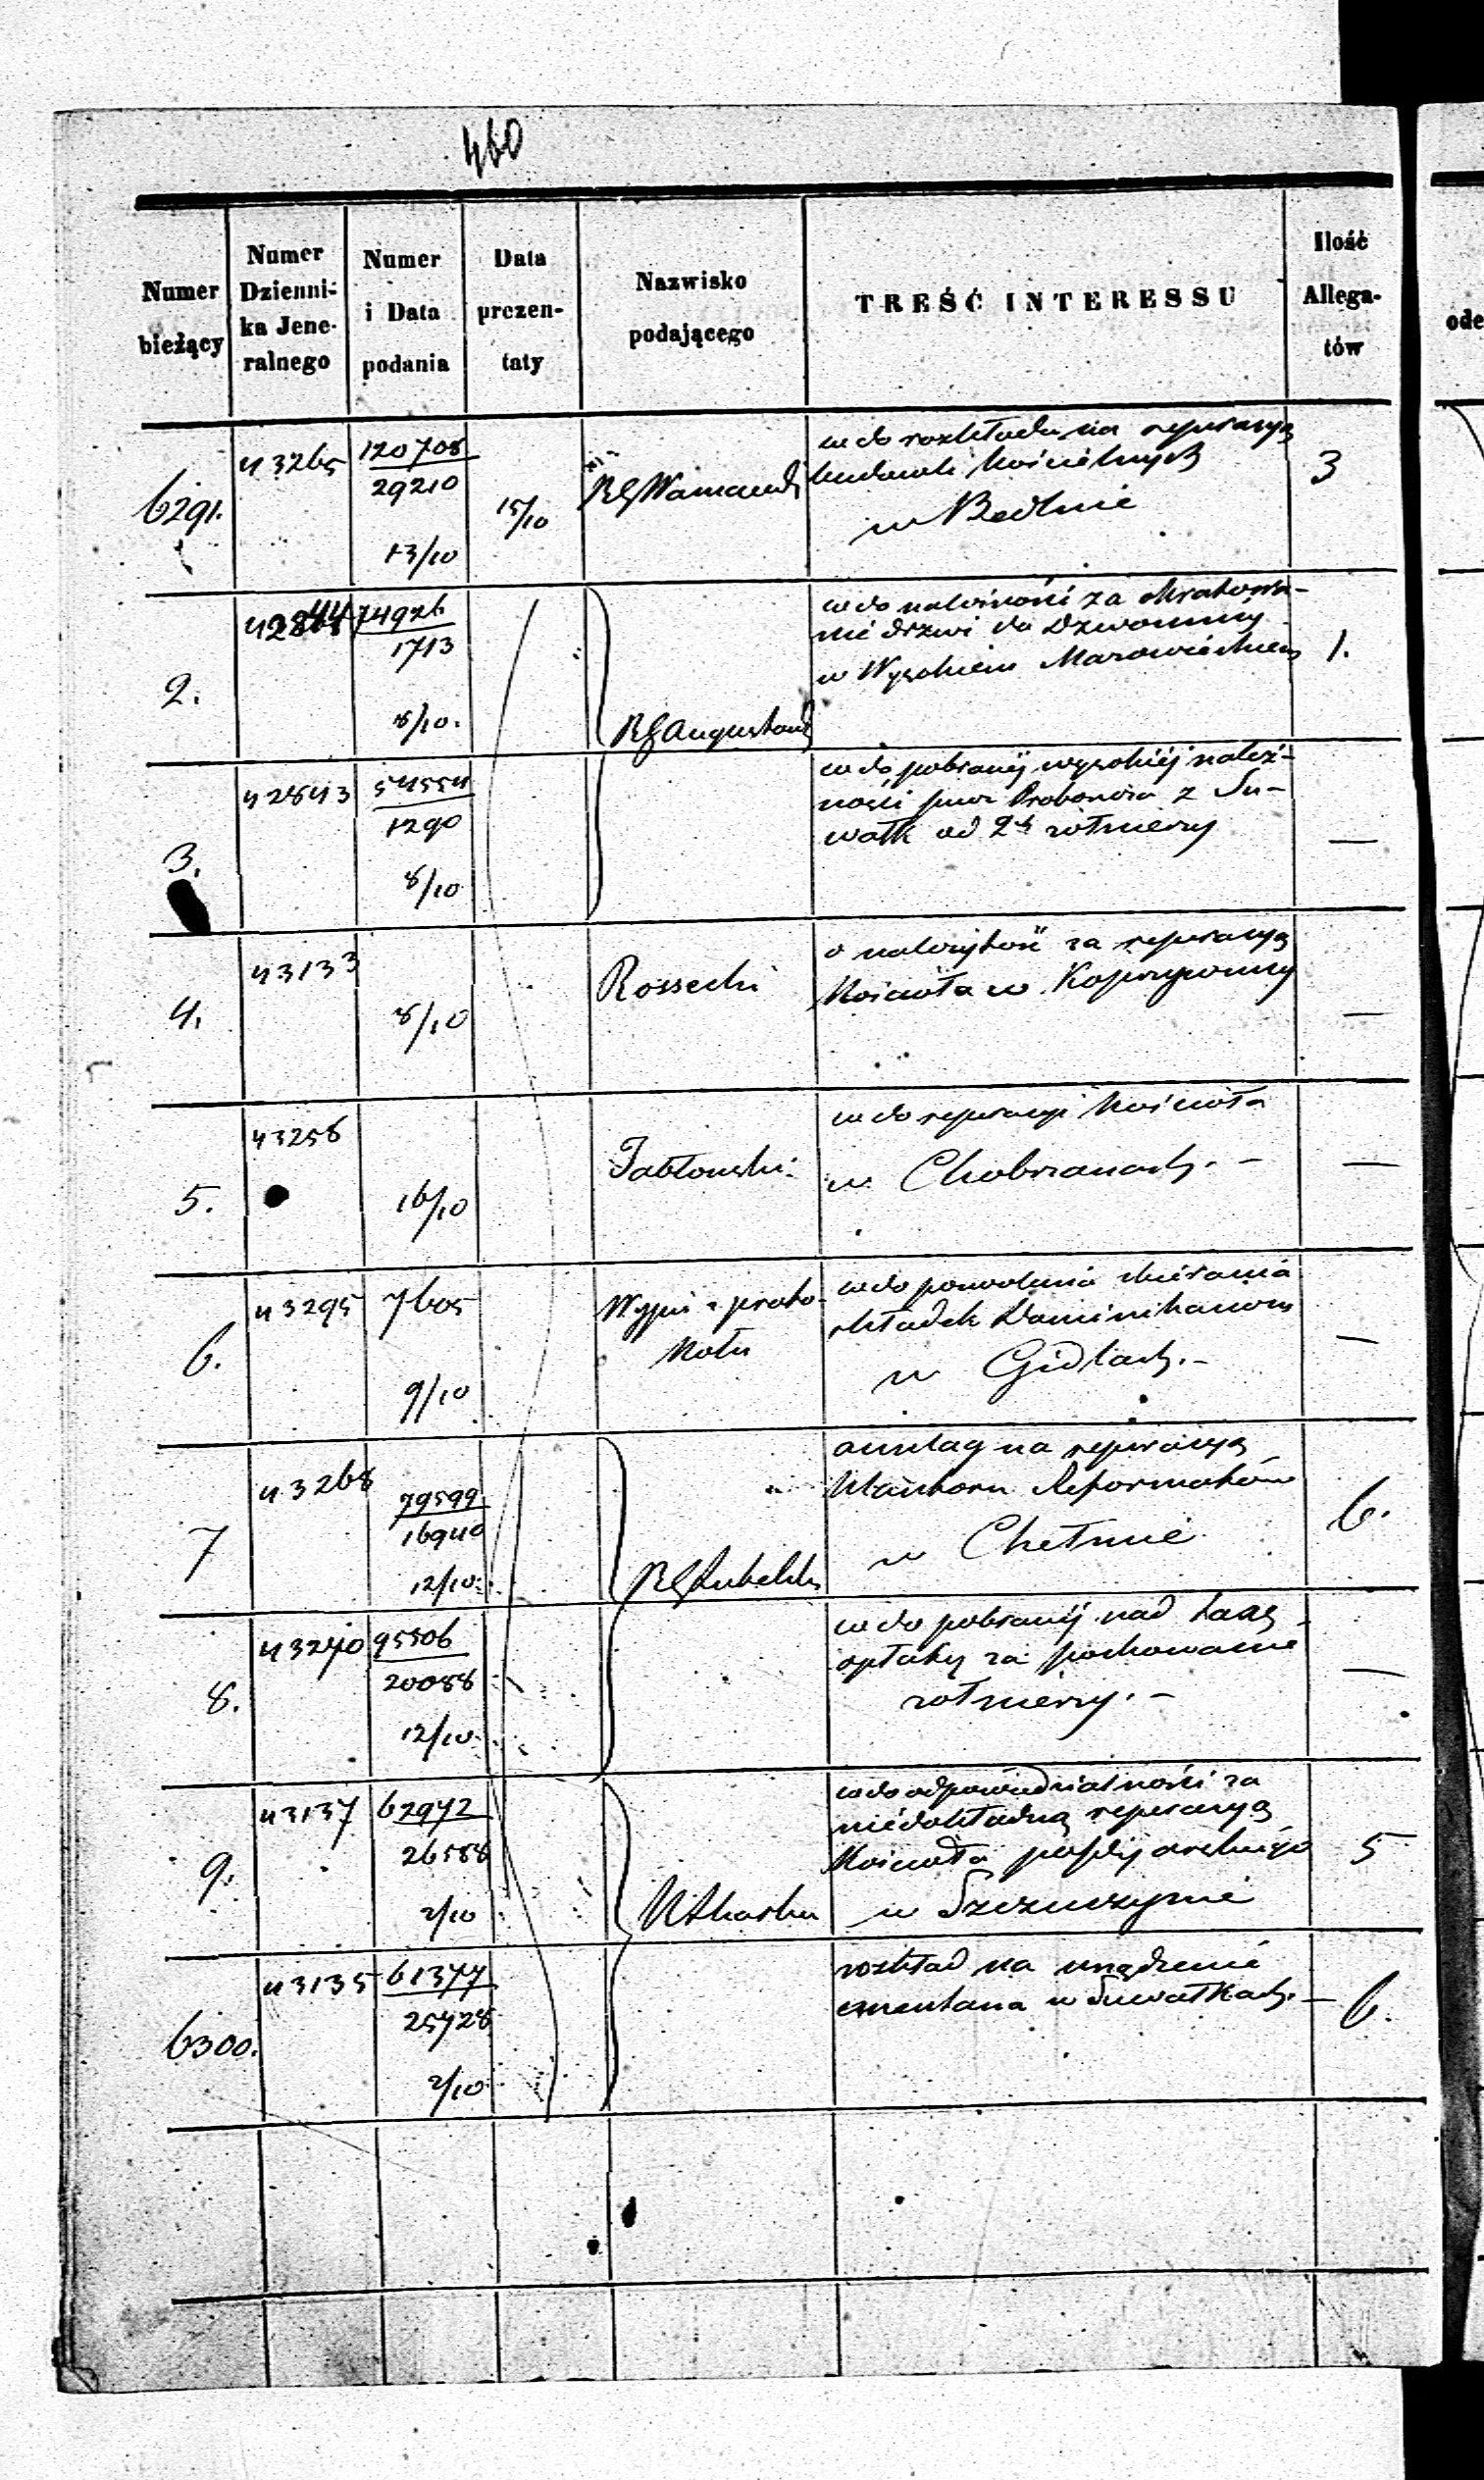 460
Numer bieżący
Numer Dzienni- ka Jene- ralnego
Numer i Data podania
Data prezen- taty
Nazwisko podającego
TREŚĆ INTERESSU
Ilość Allega- tów
ode
6291.
43265
120708
29210
13/10
15/10
RG
wdo rozkładu na reperacyą
kościelnych
w Bedlnie
3
2.
74926
1713
8/10.
RG Augustows
wdo należności za okratowa-
nie drzwi do Dzwonnicy
w Wysokiem Mazowieckiem
1.
3.
42843
54554
1290
8/10
wdo pobranéj wysokiéj należ-
ności przez Proboszcza z Su-
wałk od żołnierzy
—
4.
43133
8/10
Rossecki
o należytość za reperacyą
Kościoła w Koprzywnicy
—
5.
43258
16/10
Jabłoński
wdo reperacyi Kościoła
w Chobrzanach. -
—
6.
43295
7605
9/10
Wypis z proto-
kołu
wdo pozwolenia zbierania
składek Dominikanom
w Gidlach. -
—
7
43268
79599
16940
12/10
RG Lubelski
anszlag na reperacyą
Klasztoru Reformatów
w Chełmie
6.
8.
43270
95506
20088
12/10
wdo pobranéj nad taxę
opłaty za pochowanie
żołnierzy. -
—
9.
43137
62972
26588
2/10
wdo odpowiedzialności za
niedokładną reperacyą
Kościoła
w Szczuczynie
5
6300.
43135
61377
25728
2/10
rozkład na urządzenie
cmentarza w Suwałkach. -
6.